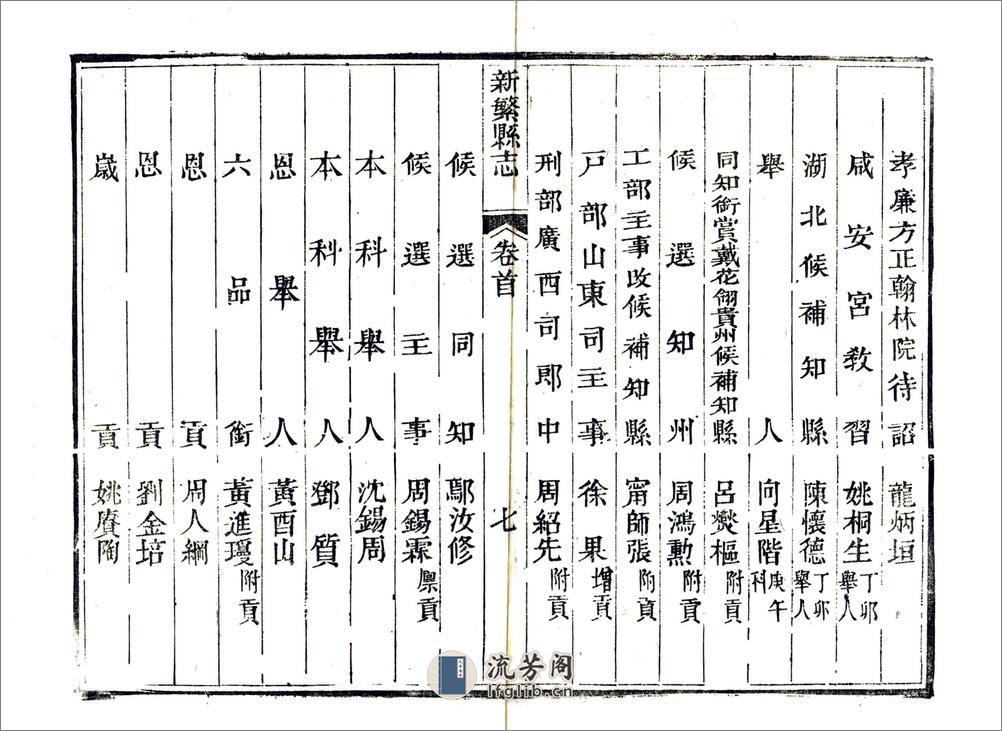 孝廉方正翰林院待詔 龍炳垣
咸安宮教習 姚桐生 丁卯舉人
湖北候補知縣 陳懷德 丁卯舉人
舉人 向星階 庚午科
同知銜賞戴花翎貴州候補知縣 呂爕樞 附貢
候選知州 周鴻勲 附貢
工部主事改候補知縣 甯師張 附貢
戸部山東司主事 徐果 增貢
刑部廣西司郎中 周紹先 附貢
新繁縣志 卷首 七
候選同知 鄢汝修
候選主事 周錫霖 廪貢
本科舉人 沈錫周
本科舉人 鄧質
恩舉人 黃酉山
六品銜 黃進瓊 附貢
恩貢 周人綱
恩貢 劉金培
歲貢 姚賡陶
流芳阁
lfglib.cn